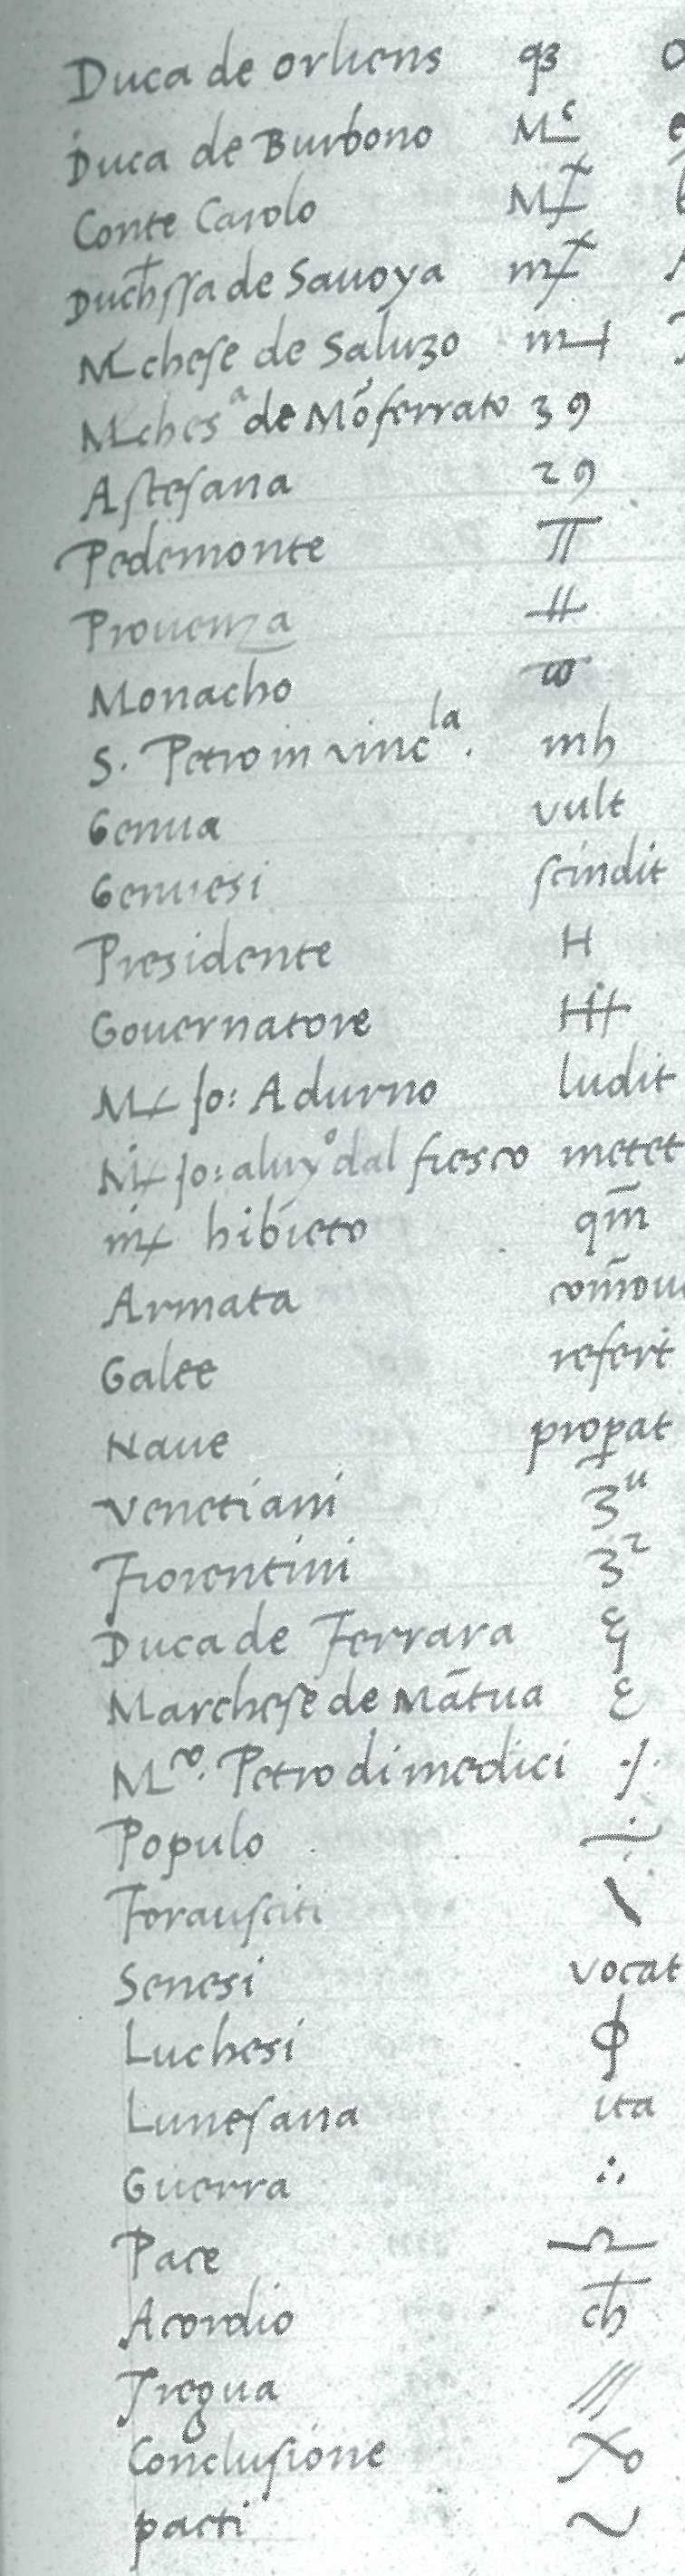 Duca de orliens 93
Duca de Burbono Mc
Conte Carolo M
Duchssa de Sauoya m
Mchese de Saluzo m
Mchesa de Mōferrato 39
Astesana 29
Pedemonte π
Prouenza
Monacho ϖ
S. Petro in vincla. mh
Genua vult
Genuesi scindit
Presidente H
Gouernatore
M Jo: Adurno ludit
M Jo: aluyo dal fiesco metet
m hibieto qm̄
Armata com̄ou
Galee refert
Naue propat
Venetiani 3u
Fiorentini 32
Duca de Ferrara
Marchese de Mātua Ɛ
Mco. Petro di medici ·/·
Populo ÷
Forausciti \
Senesi vocat
Luchesi ϕ
Lunesana ita
Guerra ∴
Pace
Acordio ch̄
Tregua ///
Conclusione
pacti ~